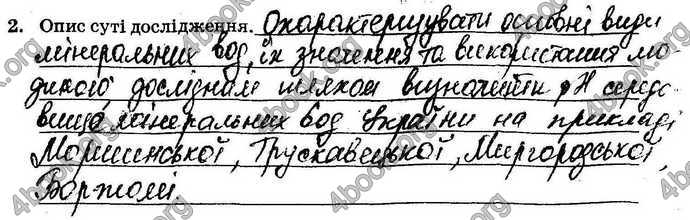 2. Опис суті дослідження. Охарактеризувати основні види
мінеральних вод, їх значення та використання ло-
дикого дослідним шляхом визначити pH середо
вища мінеральних вод України на прикладі
Моршинської, Трускавецької, Миргородської,
Боржомі